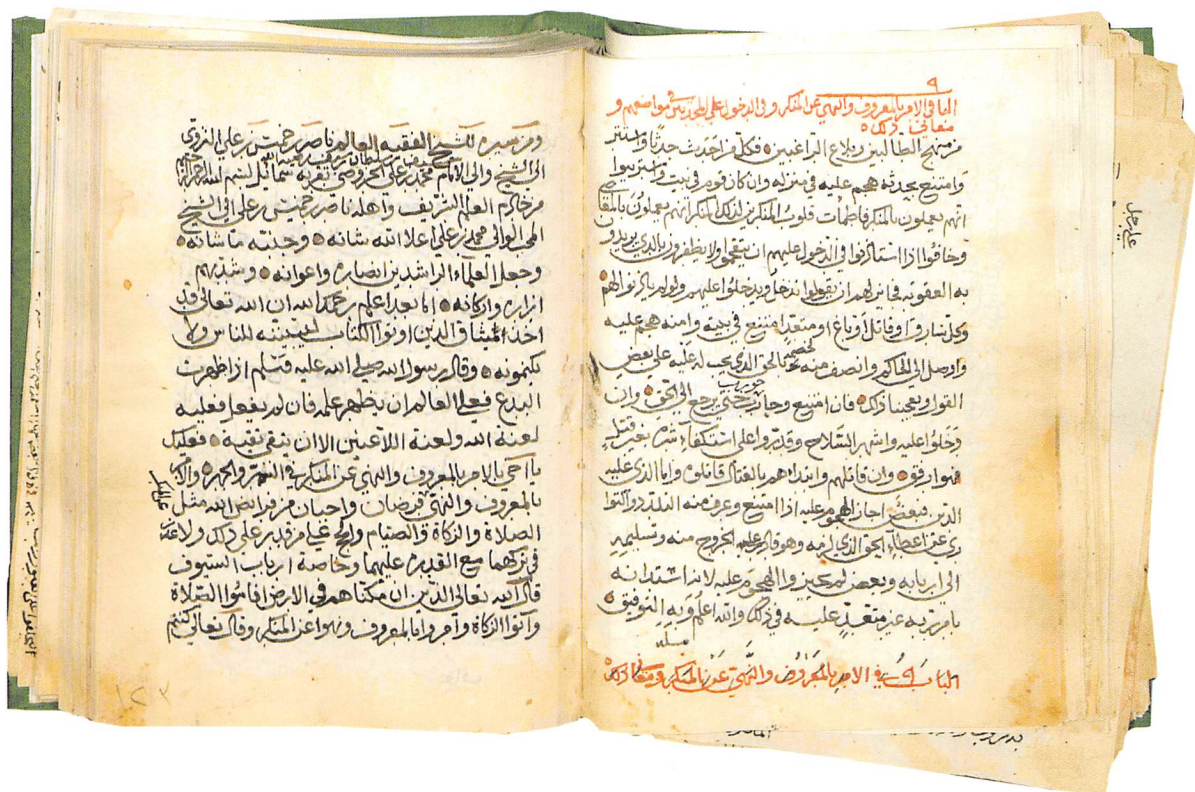 ٩
الباب في الامر بالمعروف والنهي عن المنكر وفي الدخول على المحدثين في مواضعهم و
معاني ذلك
من منهج الطالبين وبلاغ الراغبين فكل من احدث حدثا واستتر
وامتنع بحدثه هجم عليه في منزله وان كان قوم في بيت واستريبوا
انهم يعملون بالمنكر فاطمأنت قلوب المنكرين لذلك المنكر انهم يعملون بالمعاصي
وخافوا اذا استأذنوا في الدخول عليهم ان ينقحموا ولا يظفروا بالذي يريدون
به العقوبة فجائز لهم ان يقولوا ندخل ويدخلوا عليهم ولو لم ياذنوا لهم
وكل سارق او قاتل او باغ او متعد امتنع في بيته وامنه هجم عليه
واوصل الى الحاكم وانصف منه لخصمه بالحق الذي يجب له عليه على بعض
القول ويعجبنا ذلك فان امتنع وحارب حورب حتى يرجع الى الحق وان
دخلوا عليه واشهر السلاح وقدروا على استكفاء شره بغير قتل
فهو ارفق وان قاتلهم وابتداهم بالقتال قاتلوه واما الذي عليه
الدين فبعض اجاز الهجوم عليه اذا امتنع وعرف منه التلدد والتوا
ري عن اعطاء الحق الذي لزمه وهو قادر على الخروج منه وتسليمه
الى اربابه وبعض لم يجيزوا الهجوم عليه الا بعد استئذانه
فيه غير متعد عليه في ذلك والله اعلم وبه التوفيق
مسئلة
الباب في الامر بالمعروف والنهي عن المنكر ومعاني ذلك
ومن سيرة للشيخ الفقيه العالم ناصر بن خميس بن علي النزوي
الى الشيخ والي الامام محمد بن علي الحروصي بقرية سمائل بسم الله الرحمن الرحيم
من خادم العلم الشريف واهله ناصر بن خميس بن علي الى الشيخ
الوالي محمد بن علي اعلا الله شانه وجنبه ما شانه
وجعل العلماء الراشدين انصاره واعوانه وشد بهم
ازاره واركانه اما بعد اعلم رحمك الله ان الله تعالى قد
اخذ الميثاق الذين اوتوا الكتاب لتبيننه للناس ولا
تكتمونه وقال رسول الله صلى الله عليه وسلم اذا ظهرت
البدع فعلى العالم ان يظهر علمه فان لم يفعل فعليه
لعنة الله ولعنة اللاعنين الا ان يتقي تقية فعليك
يا اخي بالامر بالمعروف والنهي عن المنكر في السر والجهر والامر
بالمعروف والنهي عن المنكر فرضان واجبان من فرائض الله مثل
الصلاة والزكاة والصيام والحج على من قدر على ذلك ولا عذر
في تركهما مع القدرة عليهما وخاصة ارباب السيوف
قال الله تعالى الذين ان مكناهم في الارض اقاموا الصلاة
وآتوا الزكاة وأمروا بالمعروف ونهوا عن المنكر وقال تعالى كنتم
١٢٣